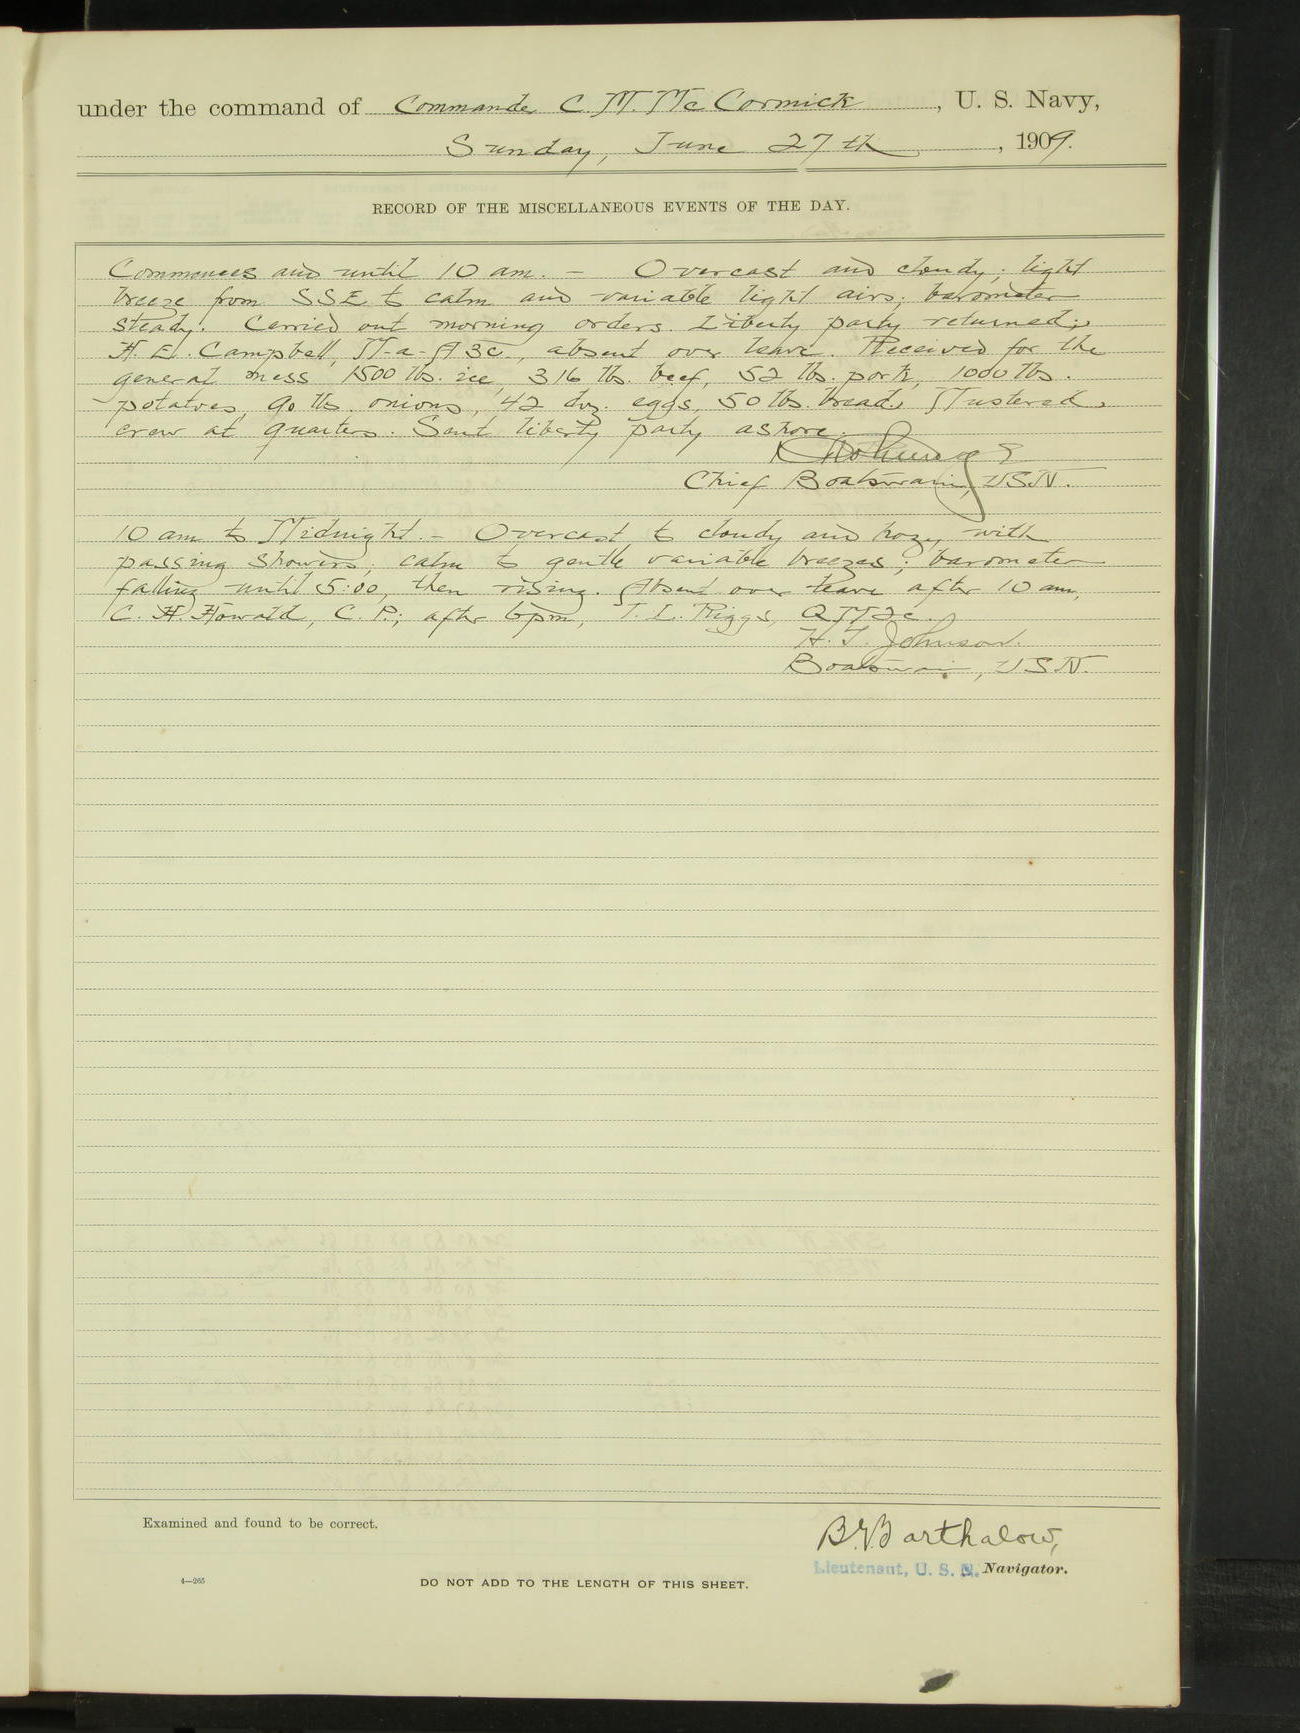 under the command of Commander C. M. McCormick, U. S. Navy,
Sunday, June 27th, 1909.
RECORD OF THE MISCELLANEOUS EVENTS OF THE DAY.
Commences and until 10 am. - Overcast and cloudy; light
breeze from SSE to calm and variable light airs; barometer
steady. Carried out morning orders. Liberty party returned;
H. E. Campbell, M-a-A 3c., absent over leave. Received for the
general mess 1500 lbs. ice, 316 lbs. beef, 52 lbs. pork, 1000 lbs.
potatoes, 90 lbs. onions, 42 doz. eggs, 50 lbs. bread. Mustered
crew at quarters. Sent liberty party ashore.
Chief Boatswain, USN.
10 am to Midnight. - Overcast to cloudy and hazy with
passing showers; calm to gentle variable breezes; barometer
falling until 5:00, then rising. Absent over leave after 10 am,
C. H. Howald, C. P.; after 6 pm, T. L. Riggs, QM2c.
H. T. Johnson.
Boatswain, USN.
Examined and found to be correct.
B. Barthalow,
Lieutenant, U. S. N. Navigator.
4—265
DO NOT ADD TO THE LENGTH OF THIS SHEET.